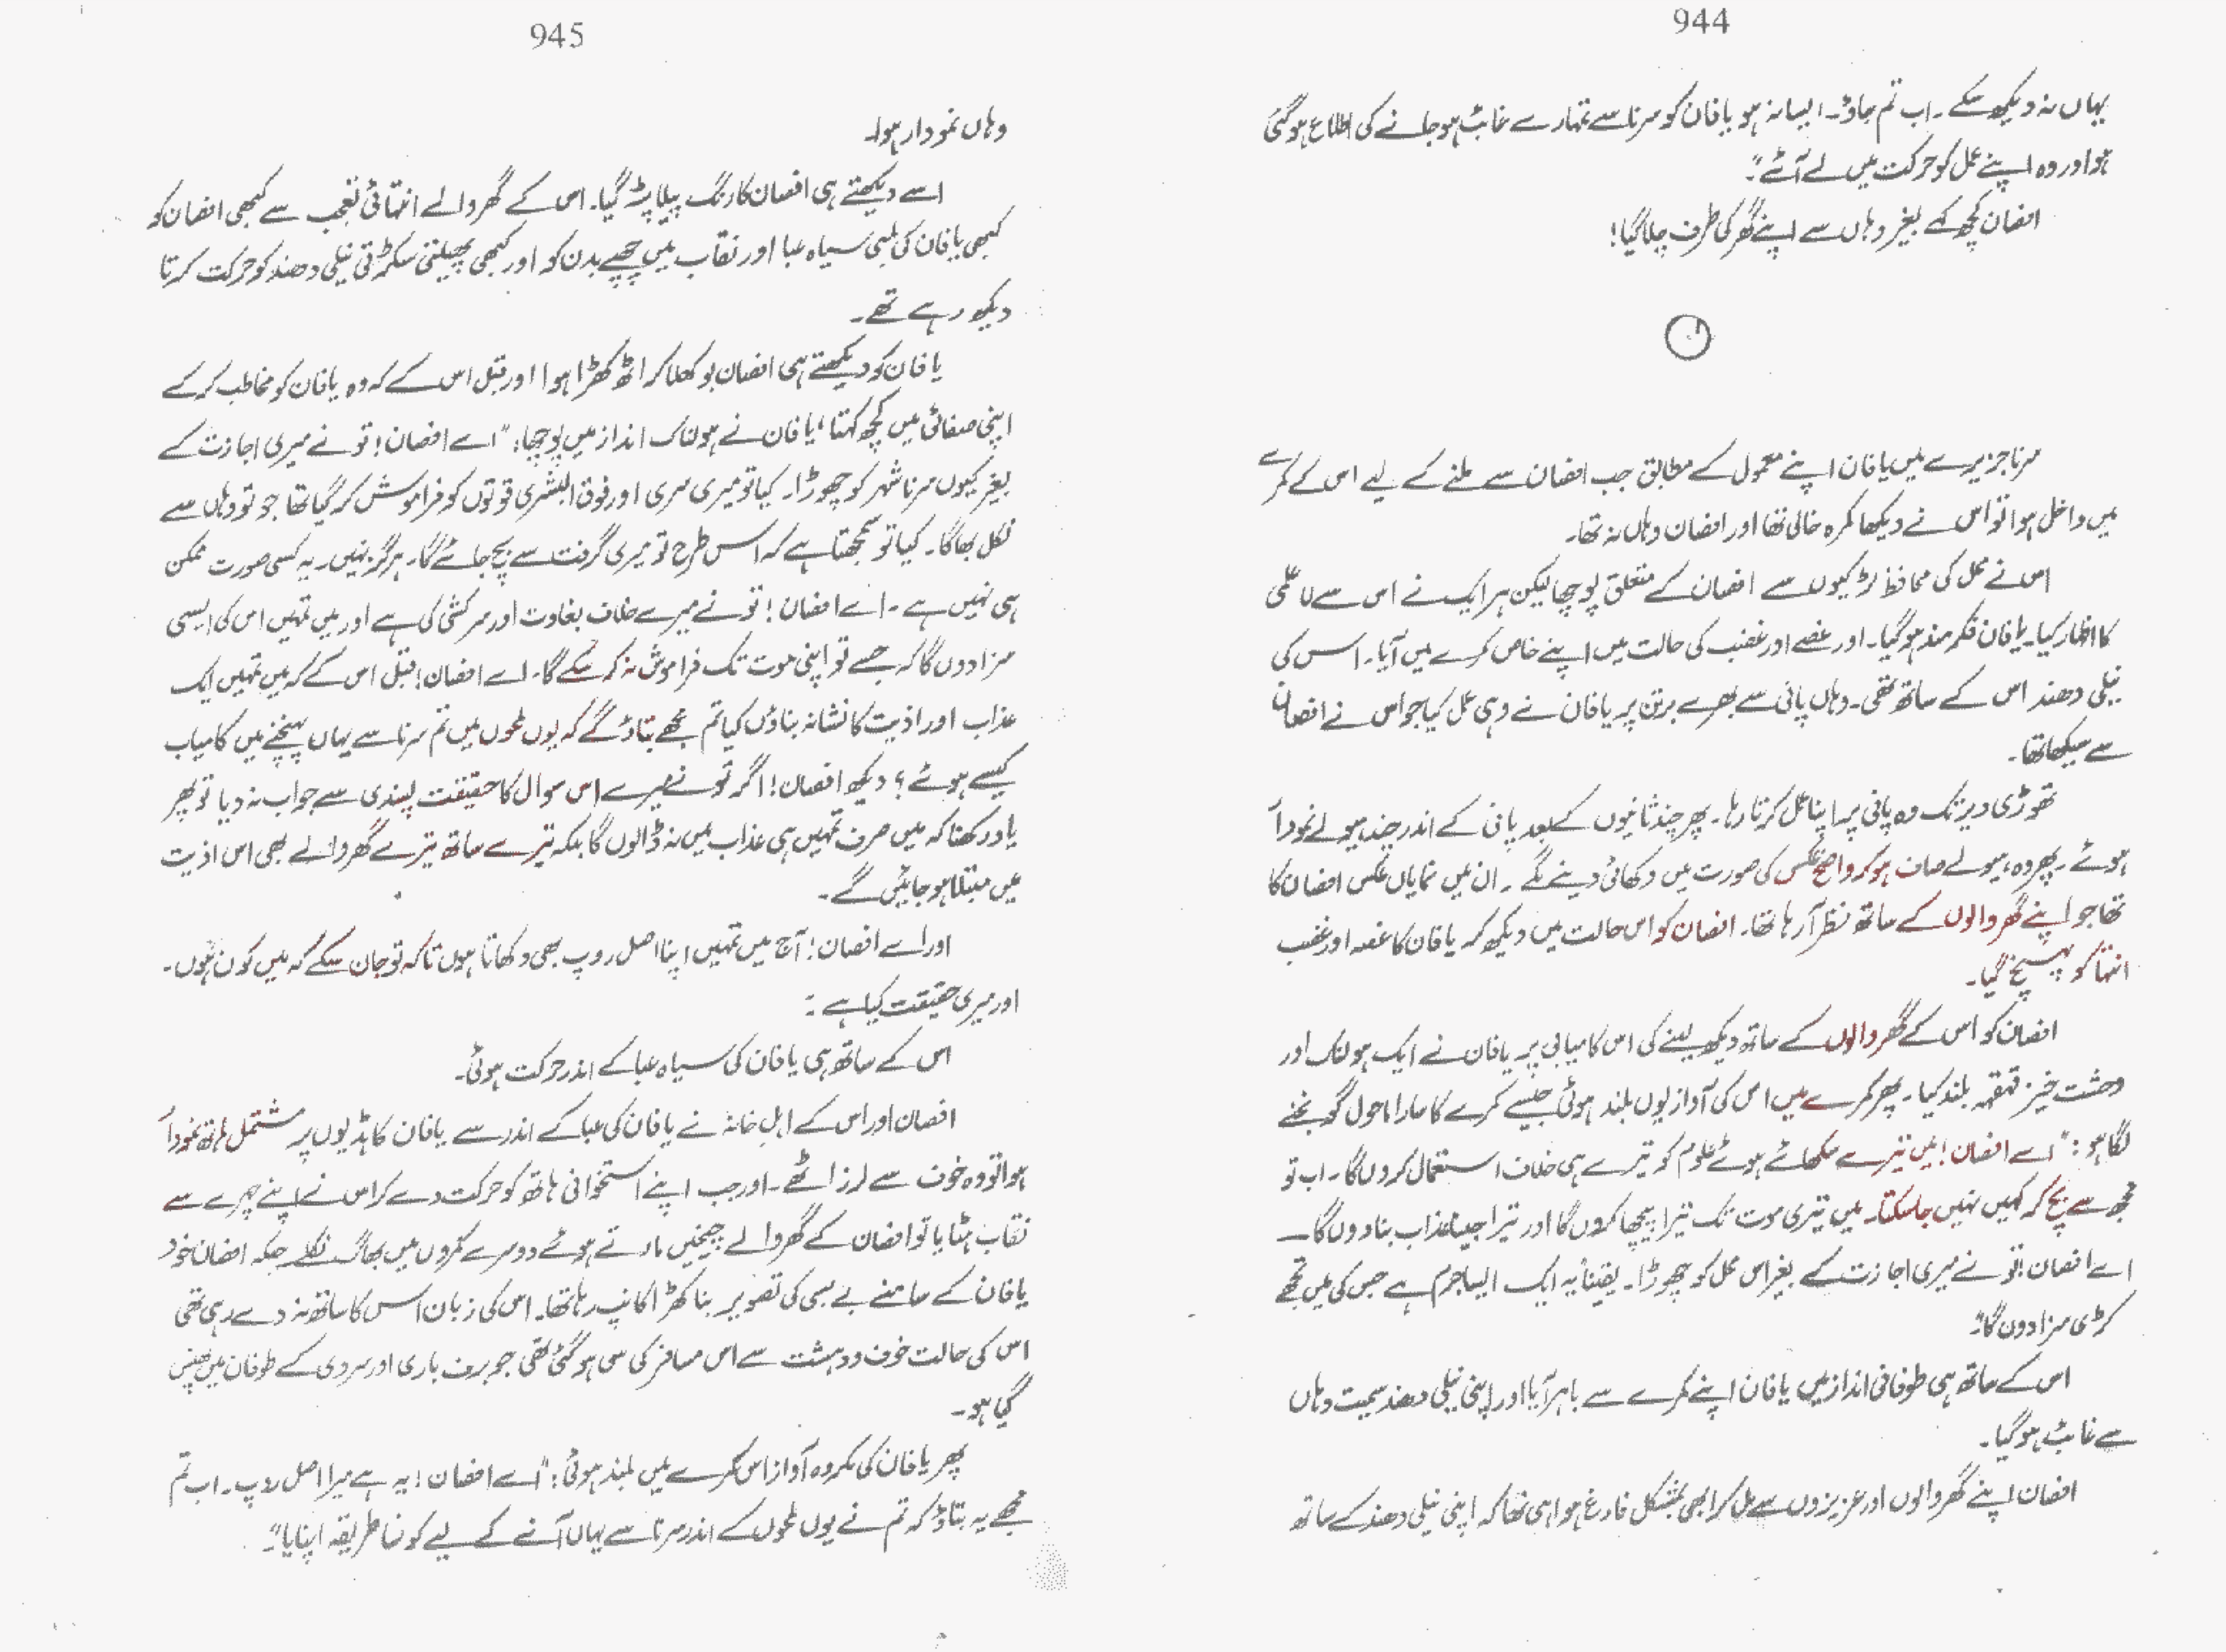 944
یہاں نہ دیکھ سکے ۔ اب تم جاؤ۔ ایسا نہ ہو یافان کو سرنا سے تمہارے غائب ہو جانے کی اطلاع ہو گئی
ہو اور وہ اپنے عمل کو حرکت میں لے آئے"۔
افضان کچھ کہے بغیر وہاں سے اپنے گھر کی طرف چلا گیا!
سرنا جزیرے میں یافان اپنے معمول کے مطابق جب افضان سے ملنے کے لیے اس کے کمرے
میں داخل ہوا تو اس نے دیکھا کمرہ خالی تھا اور افضان وہاں نہ تھا۔
اس نے محل کی محافظ لڑکیوں سے افضان کے متعلق پوچھا لیکن ہر ایک نے اس سے لاعلمی
کا اظہار کیا۔ یافان فکر مند ہو گیا۔ اور غصے اور غضب کی حالت میں اپنے خاص کمرے میں آیا۔ اس کی
نیلی دھند اس کے ساتھ تھی۔ وہاں پانی سے بھرے برتن پر یافان نے وہی عمل کیا جو اس نے افضان
سے سیکھا تھا۔
تھوڑی دیر تک وہ پانی پر اپنا عمل کرتا رہا۔ پھر چند ثانیوں کے بعد پانی کے اندر چند ہیولے نمودار
ہوئے ۔ پھر وہ ہیولے صاف ہو کر واضح عکس کی صورت میں دکھائی دینے لگے ۔ ان میں نمایاں عکس افضان کا
تھا جو اپنے گھر والوں کے ساتھ نظر آ رہا تھا۔ افضان کو اس حالت میں دیکھ کر یافان کا غصہ اور غضب
انتہا کو پہنچ گیا۔
افضان کو اس کے گھر والوں کے ساتھ دیکھ لینے کی اس کامیابی پر یافان نے ایک ہولناک اور
وحشت خیز قہقہہ بلند کیا۔ پھر کمرے میں اس کی آواز یوں بلند ہوئی جیسے کمرے کا سارا ماحول گونجنے
لگا ہو : "اے افضان! میں تیرے سکھائے ہوئے علوم کو تیرے ہی خلاف استعمال کروں گا۔ اب تو
مجھ سے بچ کر کہیں نہیں جا سکتا۔ میں تیری موت تک تیرا پیچھا کروں گا اور تیرا جینا عذاب بنا دوں گا —
اے افضان! تو نے میری اجازت کے بغیر اس محل کو چھوڑا۔ یقیناً یہ ایک ایسا جرم ہے جس کی میں تجھے
کڑی سزا دوں گا"۔
اس کے ساتھ ہی طوفانی انداز میں یافان اپنے کمرے سے باہر آیا اور اپنی نیلی دھند سمیت وہاں
سے غائب ہو گیا۔
افضان اپنے گھر والوں اور عزیزوں سے مل کر ابھی بمشکل فارغ ہوا ہی تھا کہ اپنی نیلی دھند کے ساتھ
945
وہاں نمودار ہوا۔
اسے دیکھتے ہی افضان کا رنگ پیلا پڑ گیا۔ اس کے گھر والے انتہائی تعجب سے کبھی افضان کو
کبھی یافان کی لمبی سیاہ عبا اور نقاب میں چھپے بدن کو اور کبھی پھیلتی سکڑتی نیلی دھند کو حرکت کرتا
دیکھ رہے تھے ۔
یافان کو دیکھتے ہی افضان بوکھلا کر اٹھ کھڑا ہوا اور قبل اس کے کہ وہ یافان کو مخاطب کر کے
اپنی صفائی میں کچھ کہتا، یافان نے ہولناک انداز میں پوچھا: "اے افضان! تو نے میری اجازت کے
بغیر کیوں سرنا شہر کو چھوڑا۔ کیا تو میری سری اور فوق البشری قوتوں کو فراموش کر گیا تھا جو تو وہاں سے
نکل بھاگا۔ کیا تو سمجھتا ہے کہ اس طرح تو میری گرفت سے بچ جائے گا۔ ہرگز نہیں۔ یہ کسی صورت ممکن
ہی نہیں ہے ۔ اے افضان ! تو نے میرے خلاف بغاوت اور سرکشی کی ہے اور میں تمہیں اس کی ایسی
سزا دوں گا کہ جسے تو اپنی موت تک فراموش نہ کر سکے گا۔ اے افضان! قبل اس کے کہ میں تمہیں ایک
عذاب اور اذیت کا نشانہ بناؤں کیا تم مجھے بتاؤ گے کہ یوں لمحوں میں تم سرنا سے یہاں پہنچنے میں کامیاب
کیسے ہوئے ؟ دیکھ افضان! اگر تو نے میرے اس سوال کا حقیقت پسندی سے جواب نہ دیا تو پھر
یاد رکھنا کہ میں صرف تمہیں ہی عذاب میں نہ ڈالوں گا بلکہ تیرے ساتھ تیرے گھر والے بھی اس اذیت
میں مبتلا ہو جائیں گے۔
اور اے افضان! آج میں تمہیں اپنا اصل روپ بھی دکھاتا ہوں تاکہ تو جان سکے کہ میں کون ہوں۔
اور میری حقیقت کیا ہے ؟"
اس کے ساتھ ہی یافان کی سیاہ عبا کے اندر حرکت ہوئی۔
افضان اور اس کے اہل خانہ نے یافان کی عبا کے اندر سے یافان کا ہڈیوں پر مشتمل ہاتھ نمودار
ہوا تو وہ خوف سے لرز اٹھے ۔ اور جب اپنے استخوانی ہاتھ کو حرکت دے کر اس نے اپنے چہرے سے
نقاب ہٹایا تو افضان کے گھر والے چیخیں مارتے ہوئے دوسرے کمروں میں بھاگ نکلے جبکہ افضان خود
یافان کے سامنے بے بسی کی تصویر بنا کھڑا کانپ رہا تھا۔ اس کی زبان اس کا ساتھ نہ دے رہی تھی
اس کی حالت خوف و دہشت سے اس مسافر کی سی ہو گئی تھی جو برف باری اور سردی کے طوفان میں پھنس
گیا ہو۔
پھر یافان کی مکروہ آواز اس کمرے میں بلند ہوئی: "اے افضان ! یہ ہے میرا اصل روپ۔ اب تم
مجھے یہ بتاؤ کہ تم نے یوں لمحوں کے اندر سرنا سے یہاں آنے کے لیے کون سا طریقہ اپنایا"۔